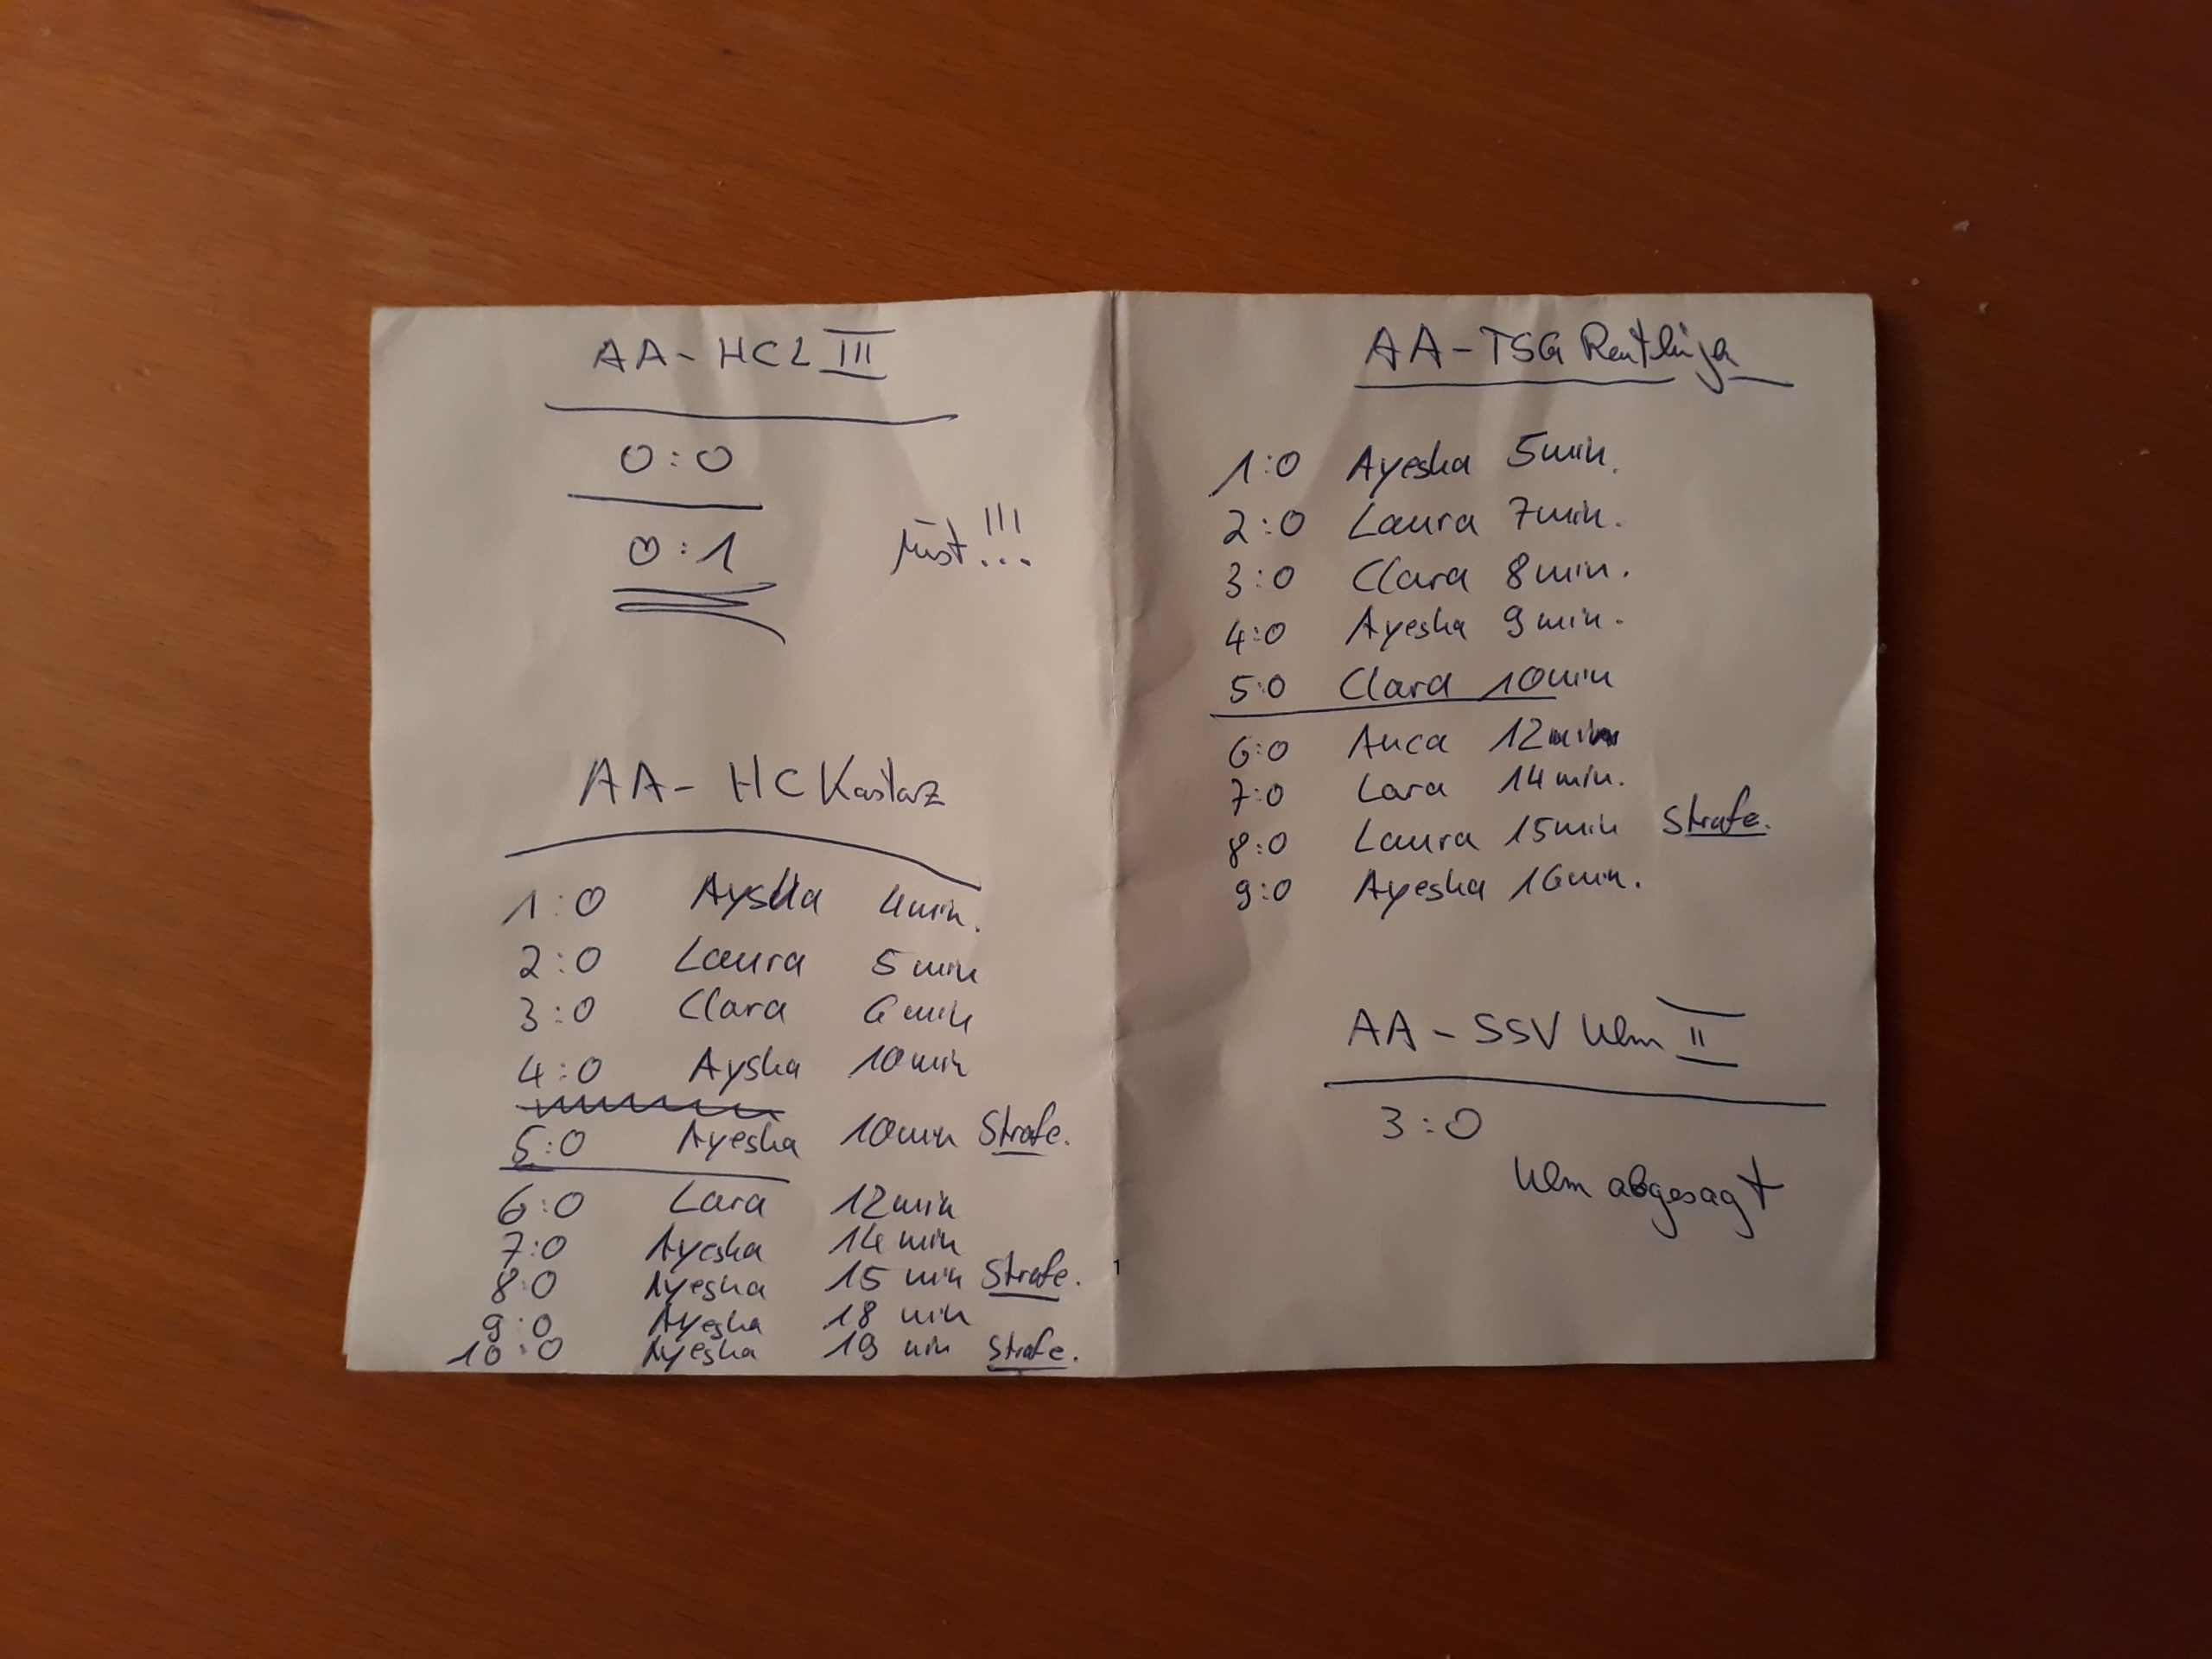 AA - HCL III
0:0
0:1
Mist!!!
AA - HC Konstanz
1:0 Aysha 4min.
2:0 Laura 5min
3:0 Clara 6min
4:0 Aysha 10min
5:0 Ayesha 10min Strafe.
6:0 Lara 12min
7:0 Ayesha 14min
8:0 Ayesha 15 min Strafe.
9:0 Ayesha 18 min
10:0 Ayesha 19 min Strafe.
AA - TSG Reutlingen
1:0 Ayesha 5min.
2:0 Laura 7min.
3:0 Clara 8min.
4:0 Ayesha 9min.
5:0 Clara 10min
6:0 Anca 12min
7:0 Lara 14min.
8:0 Laura 15min Strafe.
9:0 Ayesha 16min.
AA - SSV Ulm II
3:0
Ulm abgesagt